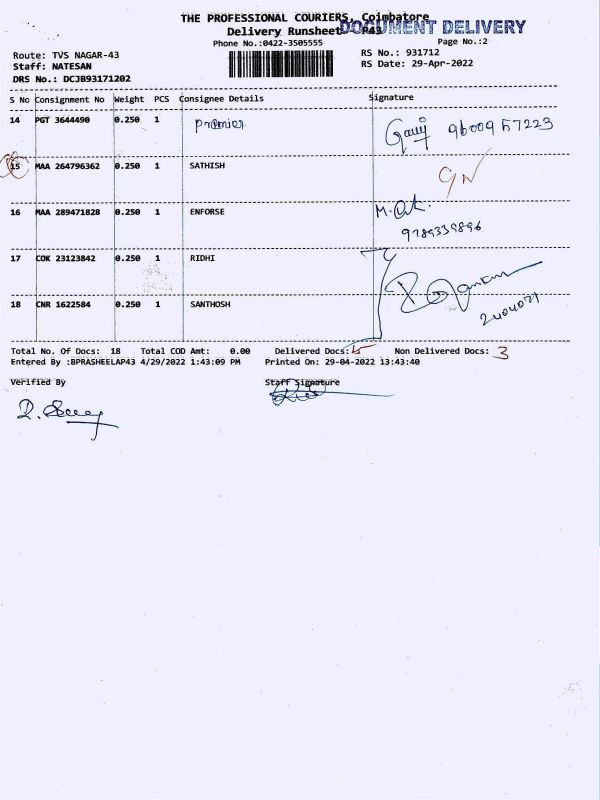 THE PROFESSIONAL COURIERS, Coimbatore
Delivery Runsheet P43
DOCUMENT DELIVERY
Phone No.:0422-3505555
Page No.:2
Route: TVS NAGAR-43
RS No.: 931712
Staff: NATESAN
RS Date: 29-Apr-2022
DRS No.: DCJB93171202
S No Consignment No Weight PCS Consignee Details Signature
14 PGT 3644490 0.250 1 premier 96009 57223
15 MAA 264796362 0.250 1 SATHISH
16 MAA 289471828 0.250 1 ENFORSE
9789339896
17 COK 23123842 0.250 1 RIDHI
18 CNR 1622584 0.250 1 SANTHOSH
Total No. Of Docs: 18 Total COD Amt: 0.00 Delivered Docs: Non Delivered Docs: 3
Entered By :BPRASHEELAP43 4/29/2022 1:43:09 PM Printed On: 29-04-2022 13:43:40
Verified By Staff Signature